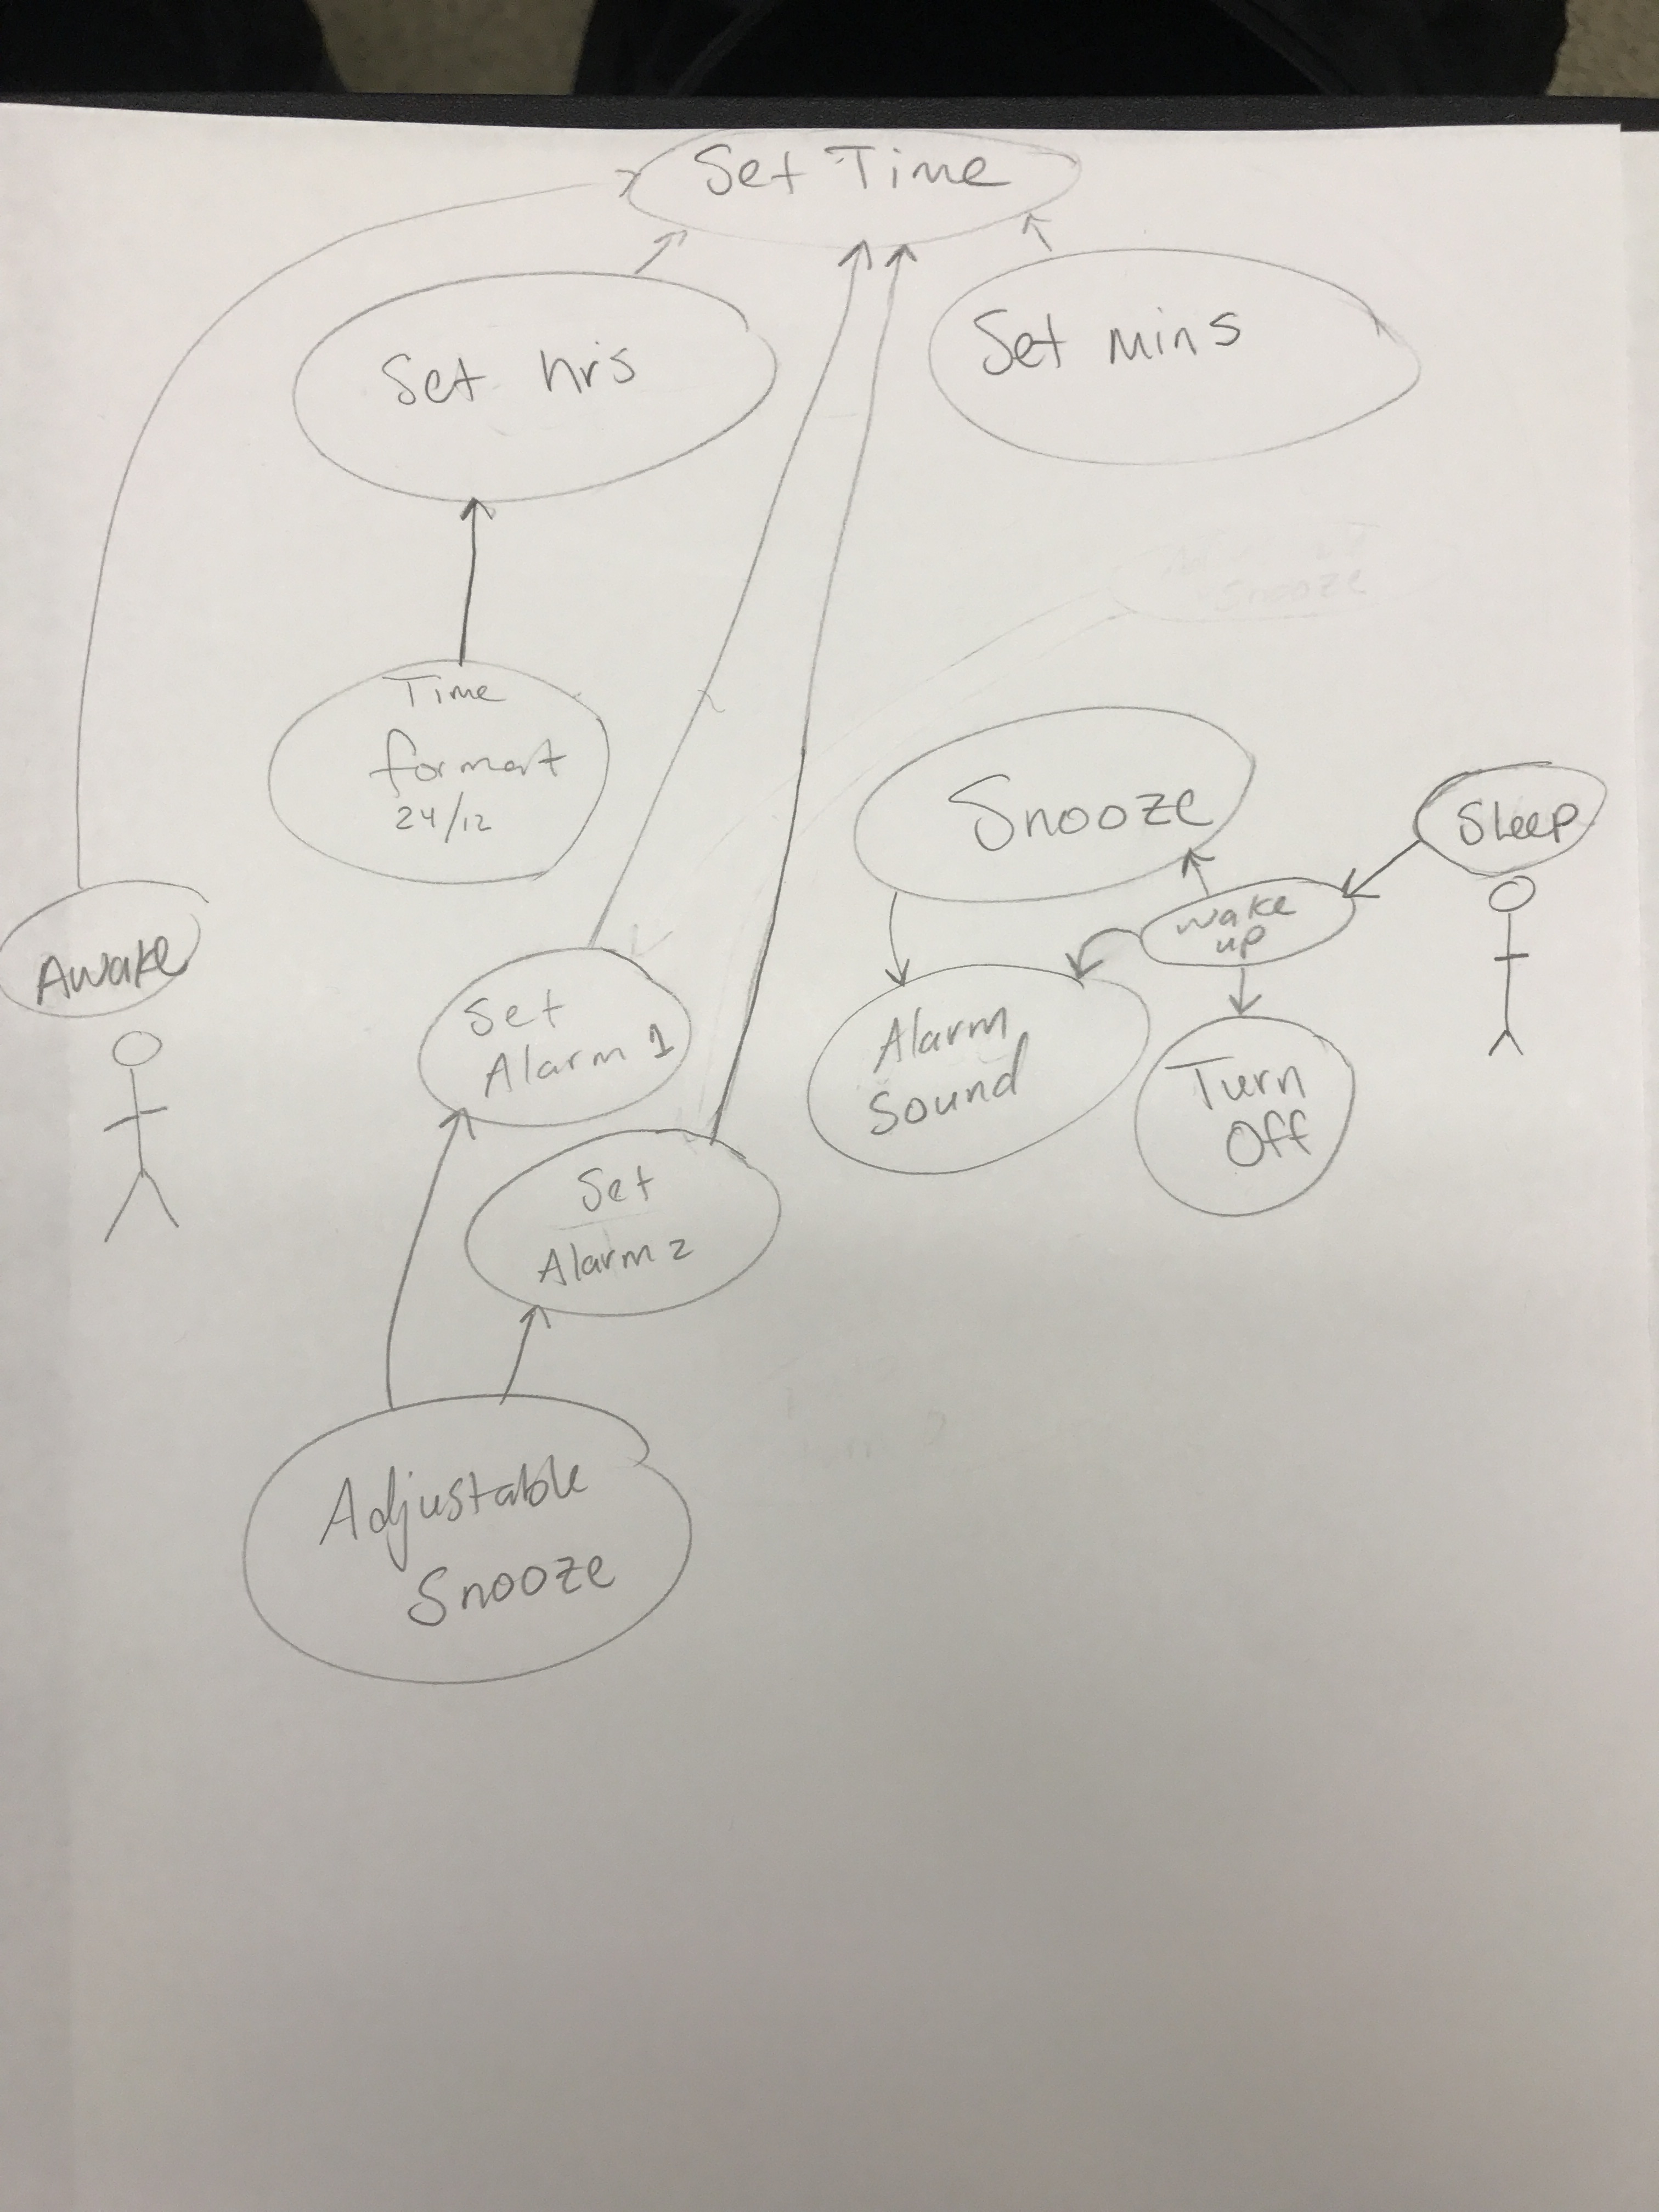 Set Time
Set hrs
Set mins
Snooze
Time
format
24/12
Snooze
Sleep
wake
up
Awake
Set
Alarm 1
Alarm
Sound
Turn
Off
Set
Alarm 2
Adjustable
Snooze